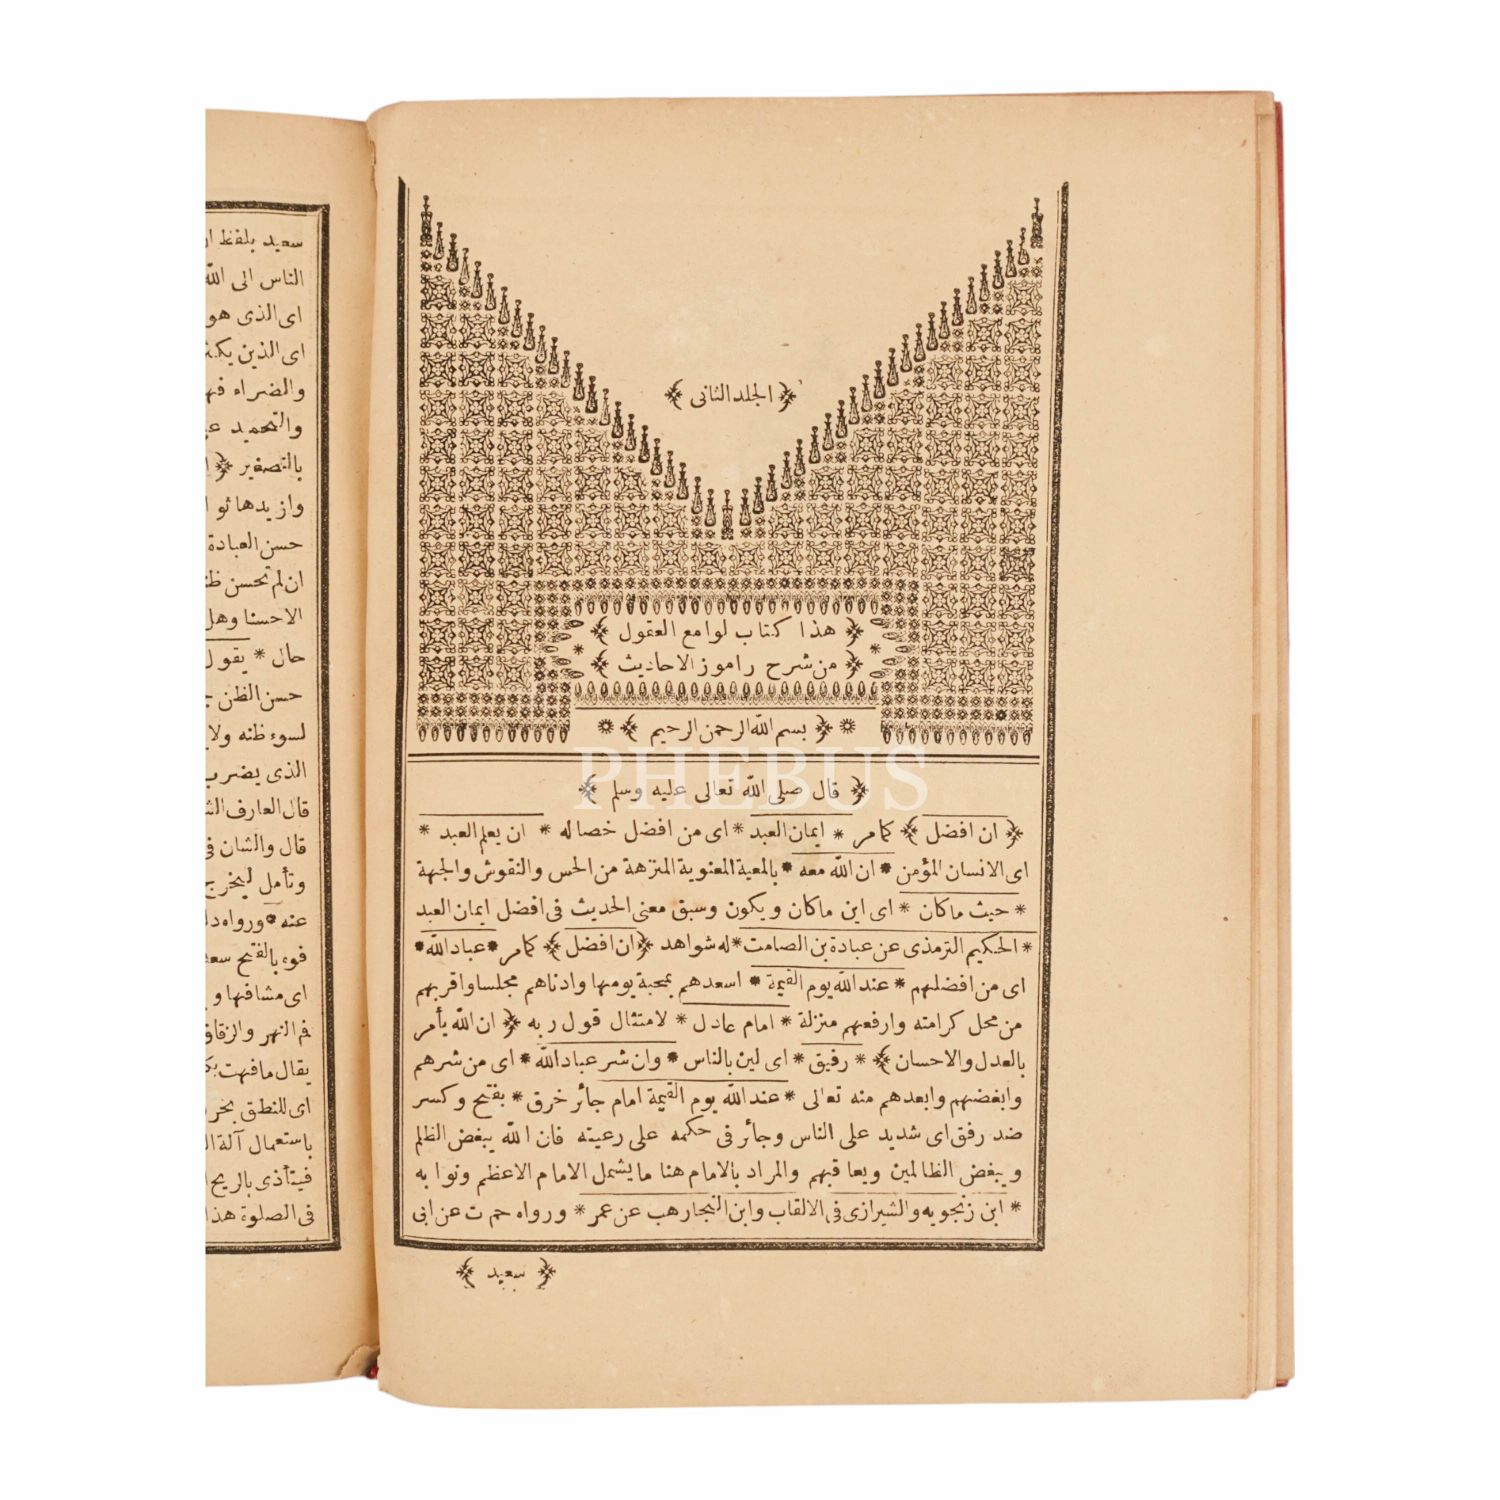 ﴿ الجلد الثانى ﴾
﴿ هذا كتاب لوامع العقول ﴾
* ﴿ من شرح راموز الاحاديث ﴾ *
* ﴿ بسم الله الرحمن الرحيم ﴾ *
PHEBUS
﴿ قال صلى الله تعالى عليه وسلم ﴾
﴿ ان افضل ﴾ كمامر * ايمان العبد * اى من افضل خصاله * ان يعلم العبد *
اى الانسان المؤمن * ان الله معه * بالمعية المعنوية المنزهة من الحس والنقوش والجهة
* حيث ماكان * اى اين ماكان ويكون وسبق معنى الحديث فى افضل ايمان العبد
* الحكيم الترمذى عن عبادة بن الصامت * له شواهد ﴿ ان افضل ﴾ كمامر * عباد الله *
اى من افضلهم * عند الله يوم القيمة * اسعدهم بمحبة يومها وادناهم مجلسا واقربهم
من محل كرامته وارفعهم منزلة * امام عادل * لامتثال قول ربه ﴿ ان الله يأمر
بالعدل والاحسان ﴾ * رفيق * اى لين بالناس * وان شر عباد الله * اى من شرهم
وابغضهم وابعدهم منه تعالى * عند الله يوم القيمة امام جائر خرق * بفتح وكسر
ضد رفق اى شديد على الناس وجائر فى حكمه على رعيته فان الله يبغض الظلم
ويبغض الظالمين ويعاقبهم والمراد بالامام هنا ما يشمل الامام الاعظم ونوابه
* ابن زنجويه والشيرازى فى الالقاب وابن النجار هب عن عمر * ورواه حم ت عن ابى
﴿ سعيد ﴾
سعيد بلفظ ا
الناس الى الله
اى الذى هو
اى الذين يكـ
والضراء فهـ
والتحميد عـ
بالتصغير ﴿
وازيدها ثوا
حسن العبادة
ان لم تحسن ظـ
الاحسنا وهل
حال * يقول
حسن الظن
لسوء ظنه ولا
الذى يضرب
قال العارف
قال والشان فى
وتأمل ليخرج
عنه * ورواه
فوه بالفتح سعـ
اى مشافها و
فم النهر والزقاق
يقال مافهت بكـ
اى للنطق بحر
باستعمال آلة
فيتأذى بالريح
فى الصلوة هذا